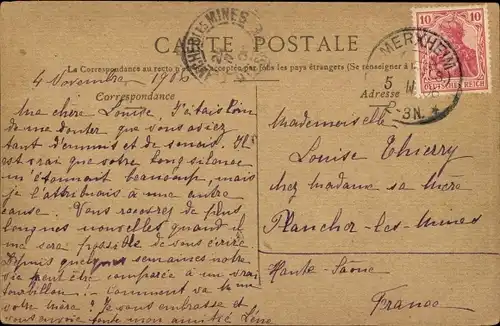 CARTE POSTALE
La Correspondance au recto n'est pas acceptée par tous les pays étrangers (Se renseigner à
Correspondance
Adresse
MERXHEIM
5
2-3N. *
10 10
DEUTSCHES REICH
MINES
4 Novembre 1906
Ma chère Louise, J'étais loin
de me douter que vous aviez
tant d'ennuis et de soucis. Il
est vrai que votre long silence
m'étonnait beaucoup, mais
je l'attribuais à une autre
cause. Vous recevrez de plus
longues nouvelles quand il
me sera possible de vous écrire.
Depuis quelques semaines notre
vie peut être comparée à un vrai
tourbillon. Comment va
votre frère? Je vous embrasse et
vous envoie toute mon amitié Léne
Mademoiselle
Louise Thierry
chez madame sa mère
Plancher-les-Mines
Haute-Saône
France